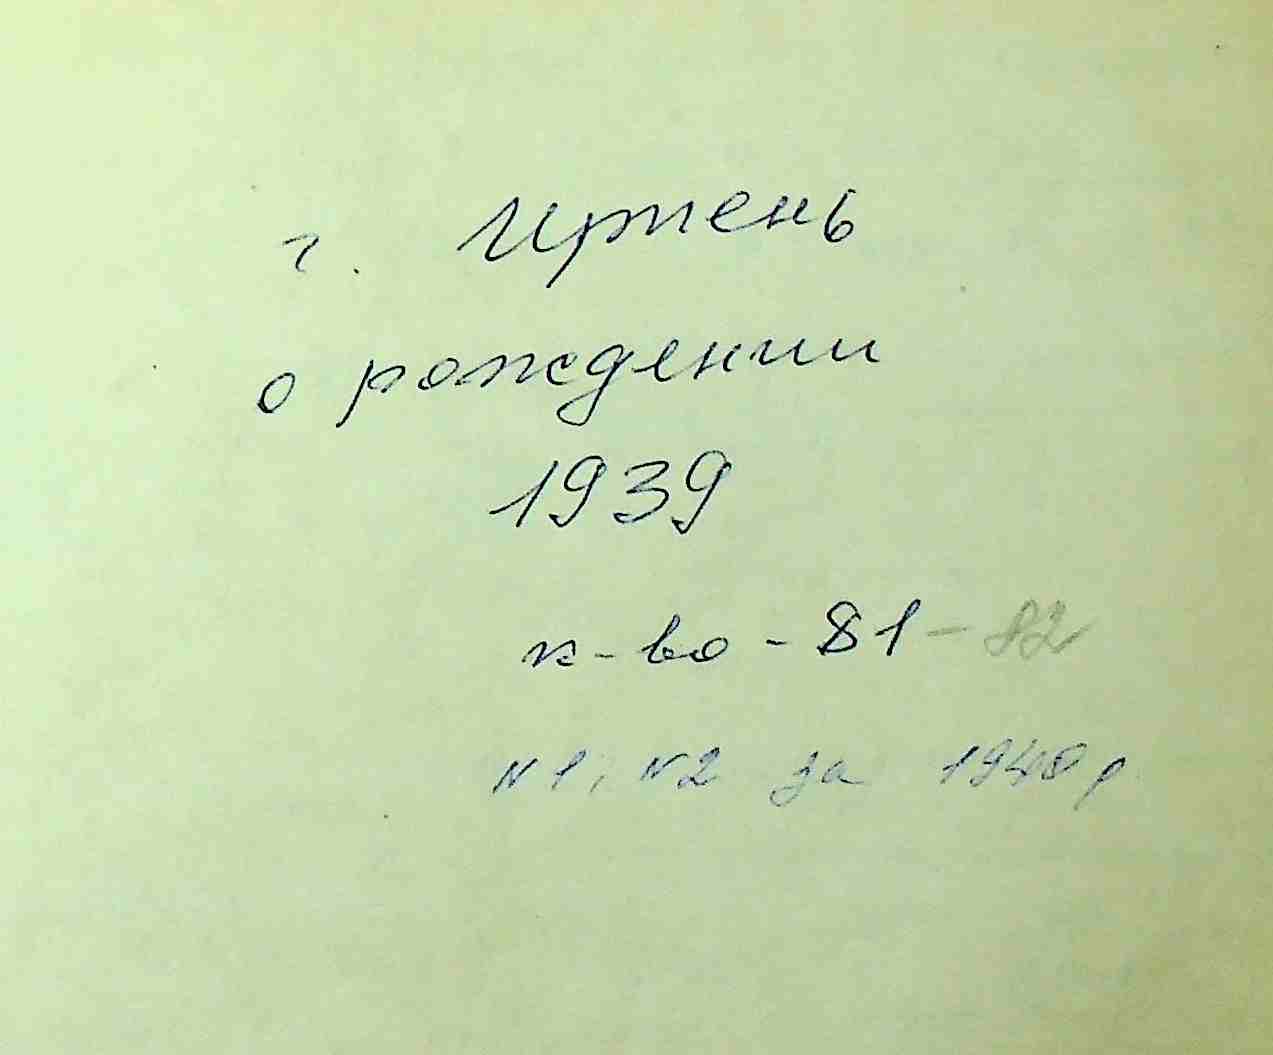 г. Ирпень
о рождении
1939
к-во - 81 - 82
N1, N2 за 1940 р